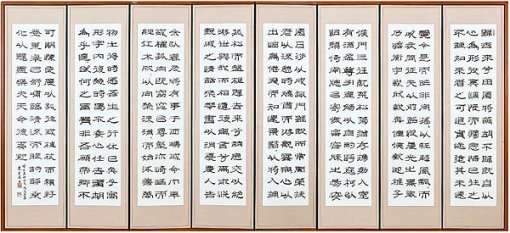 歸去來兮田園將蕪胡不歸既自以
心爲形役奚惆悵而獨悲悟已往之
不諫知來者之可追實迷途其未遠
覺今是而昨非舟搖搖以輕颺風飄飄
而吹衣問征夫以前路恨晨光之熹微
乃瞻衡宇載欣載奔僮僕歡迎稚子
候門三徑就荒松菊猶存攜幼入室
有酒盈樽引壺觴以自酌眄庭柯以
怡顏倚南窓以寄傲審容膝之易安
園日涉以成趣門雖設而常關策扶
老以流憩時矯首而遐觀雲無心以
出岫鳥倦飛而知還景翳翳以將入撫
孤松而盤桓歸去來兮請息交以絕
游世與我而相違復駕言兮焉求悅
親戚之情話樂琴書以消憂農人告
余以春及將有事于西疇或命巾車
或棹孤舟既窈窕以尋壑亦崎嶇而
經丘木欣欣以向榮泉涓涓而始流善萬
物之得時感吾生之行休已矣乎寓
形宇內復幾時曷不委心任去留胡
爲乎遑遑欲何之富貴非吾願帝鄉不
可期懷良辰以孤往或植杖而耘耔
登東皐以舒嘯臨清流而賦詩聊乘
化以歸盡樂夫天命復奚疑